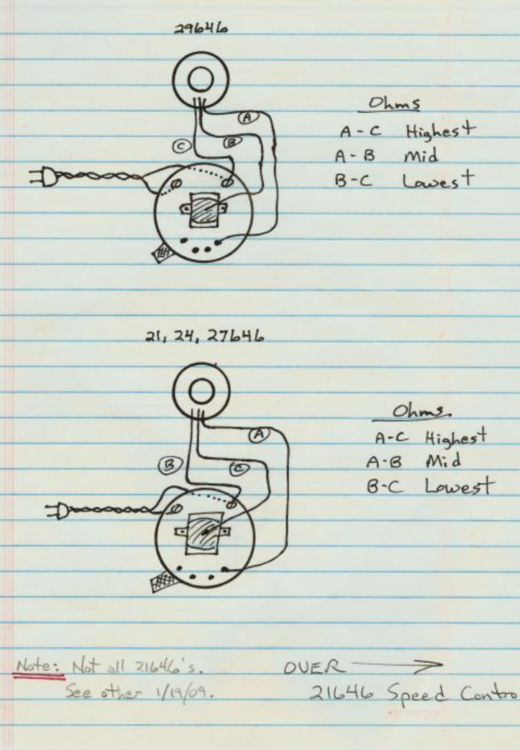 29646
A
C
B
Ohms
A-C Highest
A-B Mid
B-C Lowest
21, 24, 27646
A
B
C
Ohms.
A-C Highest
A-B Mid
B-C Lowest
Note: Not all 21646's.
See other 1/19/09.
OVER
21646 Speed Contro